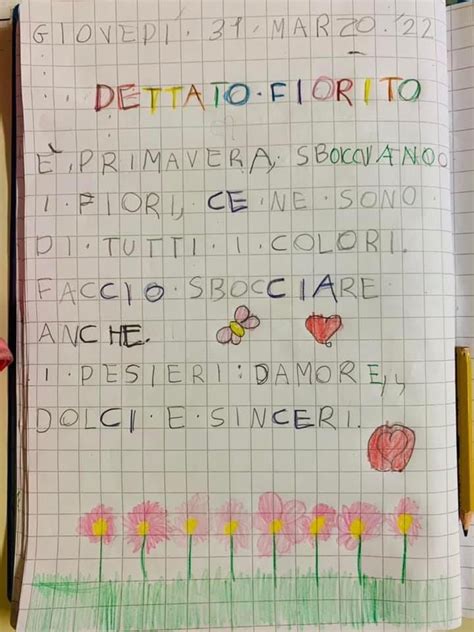 GIOVEDÌ · 31 · MARZO · '22
DETTATO · FIORITO
È · PRIMAVERA, SBOCCIANO
I · FIORI, CE · NE · SONO
DI · TUTTI · I · COLORI.
FACCIO · SBOCCIARE
ANCHE.
I · PESIERI : DAMORE,,
DOLCI · E · SINCERI.